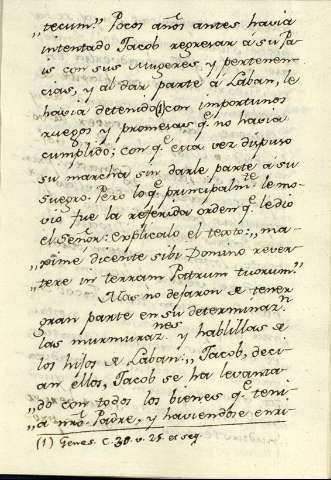 „tecum." Pocos años antes havia
intentado Jacob regresar á su Pa-
is con sus Mugeres y pertenen-
cias, y al dar parte á Laban, le
havia detenido(1)con importunos
ruegos y promesas q.e no havia
cumplido; con q.e esta vez dispuso
su marcha sin darle parte á su
suegro. Pero lo q.e principalm.te le mo-
vio fue la referida orden q.e le dio
el Señor: explicalo el texto: „ma-
„xime dicente sibi Domino rever-
„tere in terram Patrum tuorum."
Mas no dejaron de tener
gran parte en su determinaz.n
las murmuraz.nes y hablillas de
los hijos de Laban: „Jacob, deci-
an ellos, Jacob se ha levanta-
„do con todos los bienes q.e teni-
„a nro. Padre, y haviendose enri-
(1) Genes. C. 30. v. 25. et seq.